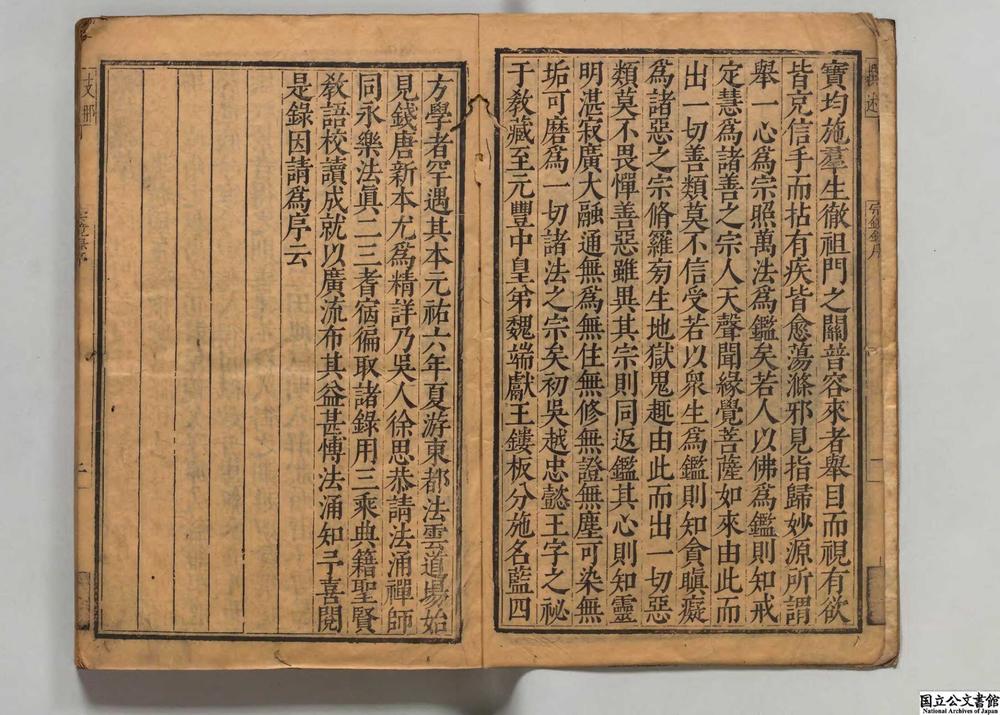 寶均施羣生徹祖門之關普容來者舉目而視有欲
皆克信手而拈有疾皆愈蕩滌邪見指歸妙源所謂
舉一心為宗照萬法為鑑矣若人以佛為鑑則知戒
定慧為諸善之宗人天聲聞緣覺菩薩如來由此而
出一切善類莫不信受若以衆生為鑑則知貪瞋癡
為諸惡之宗脩羅旁生地獄鬼趣由此而出一切惡
類莫不畏憚善惡雖異其宗則同返鑑其心則知靈
明湛寂廣大融通無為無住無修無證無塵可染無
垢可磨為一切諸法之宗矣初吳越忠懿王字之祕
于教藏至元豐中皇弟魏端獻王鏤板分施名藍四
方學者罕遇其本元祐六年夏游東都法雲道場始
見錢唐新本尤為精詳乃吳人徐思恭請法涌禪師
同永樂法眞二三耆宿徧取諸錄用三乘典籍聖賢
教語校讀成就以廣流布其益甚博法涌知予喜閱
是錄因請為序云
支那
撰述
宗鏡錄序
二
国立公文書館
National Archives of Japan